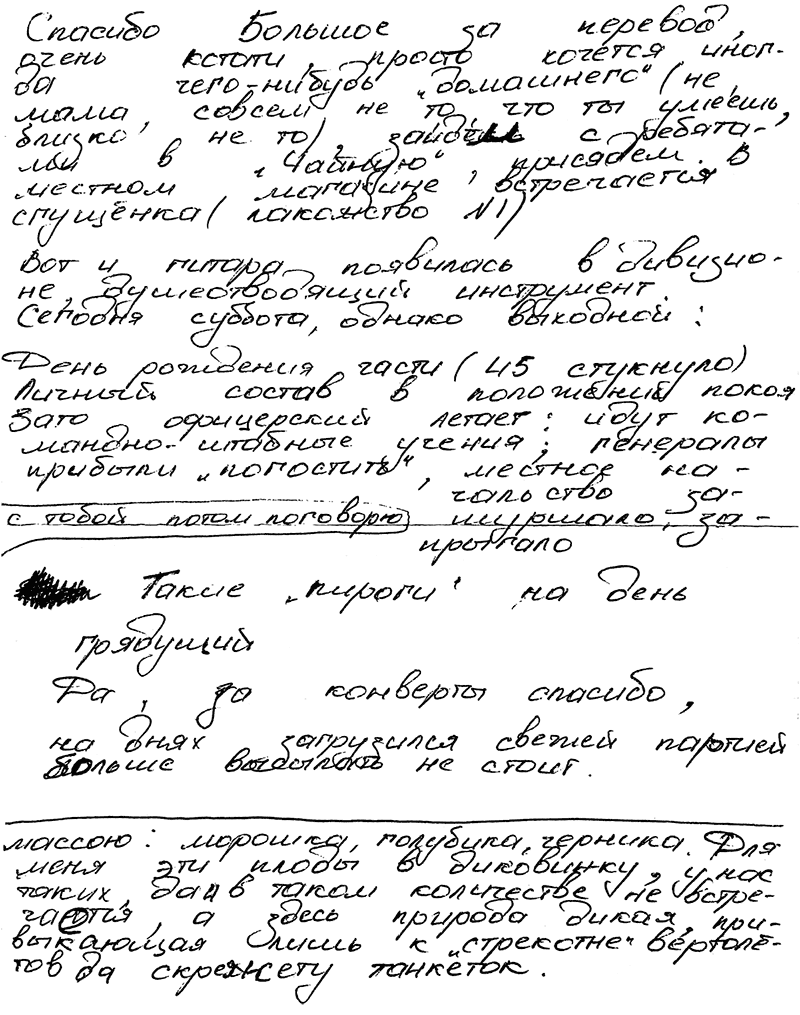 Спасибо Большое за перевод,
очень кстати, просто хочется иног-
да чего-нибудь „домашнего" (не,
мама, совсем не то, что ты умеешь,
близко не то), зайдём с ребята-
ми в „Чайную", присядем. В
местном магазине, встречается
сгущёнка (лакомство №1)
Вот и гитара появилась в дивизио-
не, душеотводящий инструмент.
Сегодня суббота, однако выходной:
День рождения части (45 стукнуло)
Личный состав в положении покоя
Зато офицерский летает: идут ко-
мандно-штабные учения; генералы
прибыли „погостить", местное на-
чальство за-
с тобой потом поговорю шуршало, за-
прыгало
Такие „пироги" на день
грядущий
Да, за конверты спасибо,
на днях загрузился свежей партией
больше высылать не стоит.
массою: морошка, голубика, черника. Для
меня эти плоды в диковинку, у нас
таких, да и в таком количестве не встре-
чается, а здесь природа дикая, при-
выкающая лишь к „стрекотне" вертолё-
тов да скрежету танкеток.